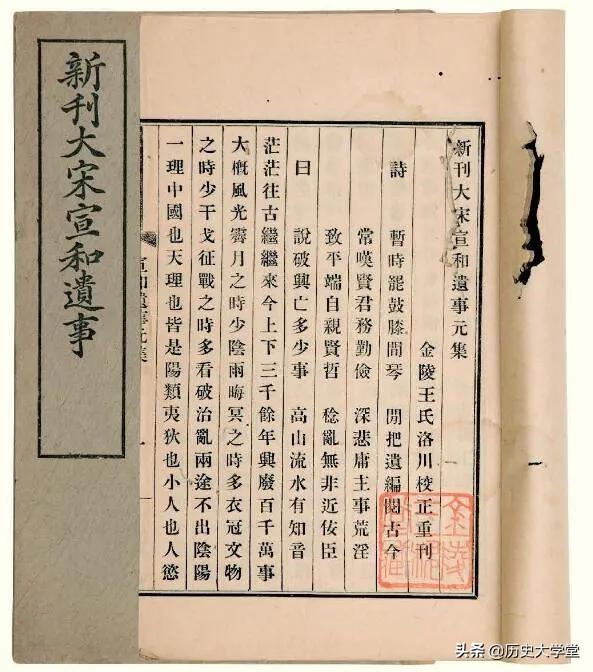 新刊大宋宣和遺事
新刊大宋宣和遺事元集
金陵王氏洛川校正重刊
詩 暫時罷鼓膝間琴 閒把遺編閱古今
常嘆賢君務勤儉 深悲庸主事荒淫
致平端自親賢哲 稔亂無非近佞臣
曰 說破興亡多少事 高山流水有知音
茫茫往古繼繼來今上下三千餘年興廢百千萬事
大槪風光霽月之時少陰雨晦冥之時多衣冠文物
之時少干戈征戰之時多看破治亂兩途不出陰陽
一理中國也天理也皆是陽類夷狄也小人也人慾
宣和遺事元集 一
头条 @历史大学堂